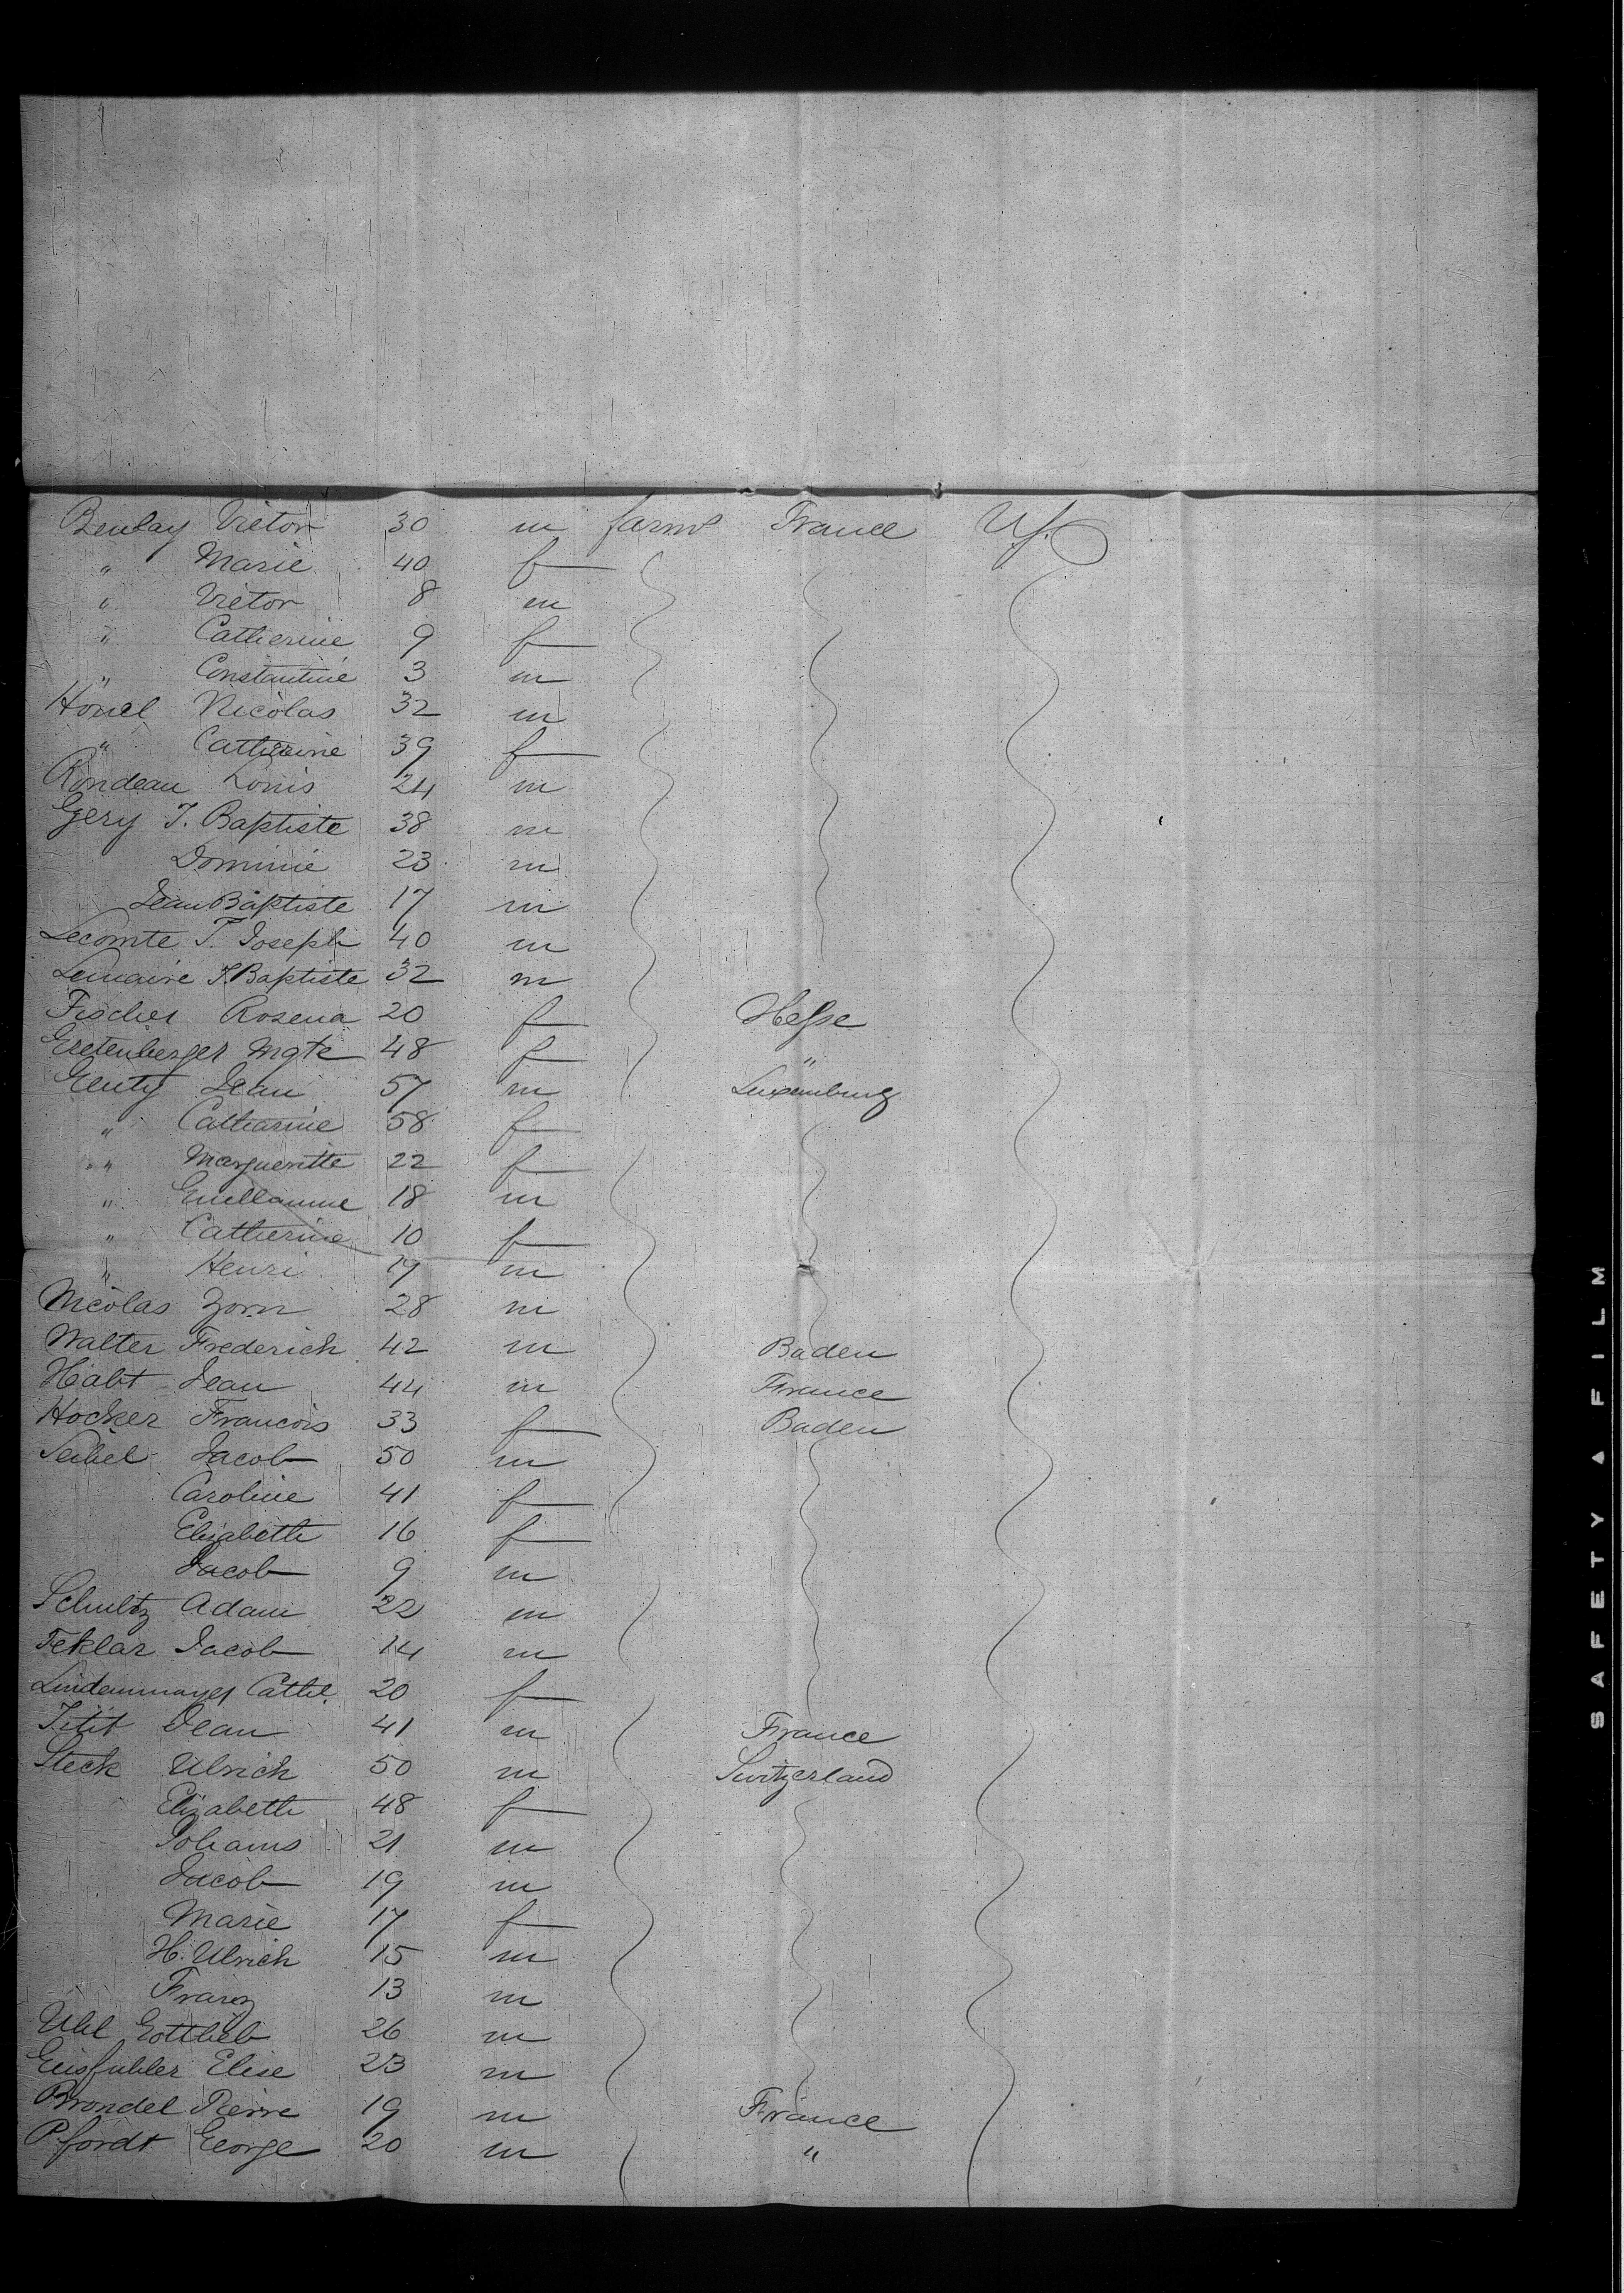 Beulay Victor 30 m farmr France U.S.
" Marie 40 f
" Victor 8 m
" Catherine 9 f
" Constantine 3 m
Honel Nicolas 32 m
" Catherine 39 f
Rondeau Louis 24 m
Gery J. Baptiste 38 m
Dominie 23 m
Jean Baptiste 17 m
Lecomte T. Joseph 40 m
Lemaire J. Baptiste 32 m
Fischer Rosena 20 f Hesse
Gretenberger Mgte 48 f "
Genty Jean 57 m Luxemburg
" Catharine 58 f
" Margueritte 22 f
" Guellaume 18 m
" Catherine 10 f
" Henri 17 m
Nicolas Zorn 28 m
Walter Frederich 42 m Baden
Habt Jean 44 m France
Hocker Francois 33 f Baden
Seibel Jacob 50 m
Caroline 41 f
Elisabeth 16 f
Jacob 9 m
Schultz Adam 22 m
Teklar Jacob 14 m
Lindenmayer Cathe 20 f
Titit Jean 41 m France
Steck Ulrich 50 m Switzerland
Elizabeth 48 f
Johanns 21 m
Jacob 19 m
Marie 17 f
H. Ulrich 15 m
Franz 13 m
Uhl Gottlieb 26 m
Geisfuhler Elise 23 m
Brondel Pierre 19 m France
Pfordt George 20 m "
SAFETY ▲ FILM